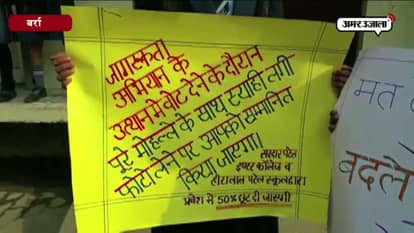 बर्रा
अमर उजाला
जागरूकता
अभियान के
उत्थान में वोट देने के दौरान
पूरे मोहल्ले के साथ स्याही लगी
फोटो लेने पर आपको सम्मानित
किया जाएगा।
सरदार पटेल
इण्टर कॉलेज व
हीरालाल पटेल स्कूल द्वारा
प्रवेश में 50% छूट दी जाएगी
मत
बदले